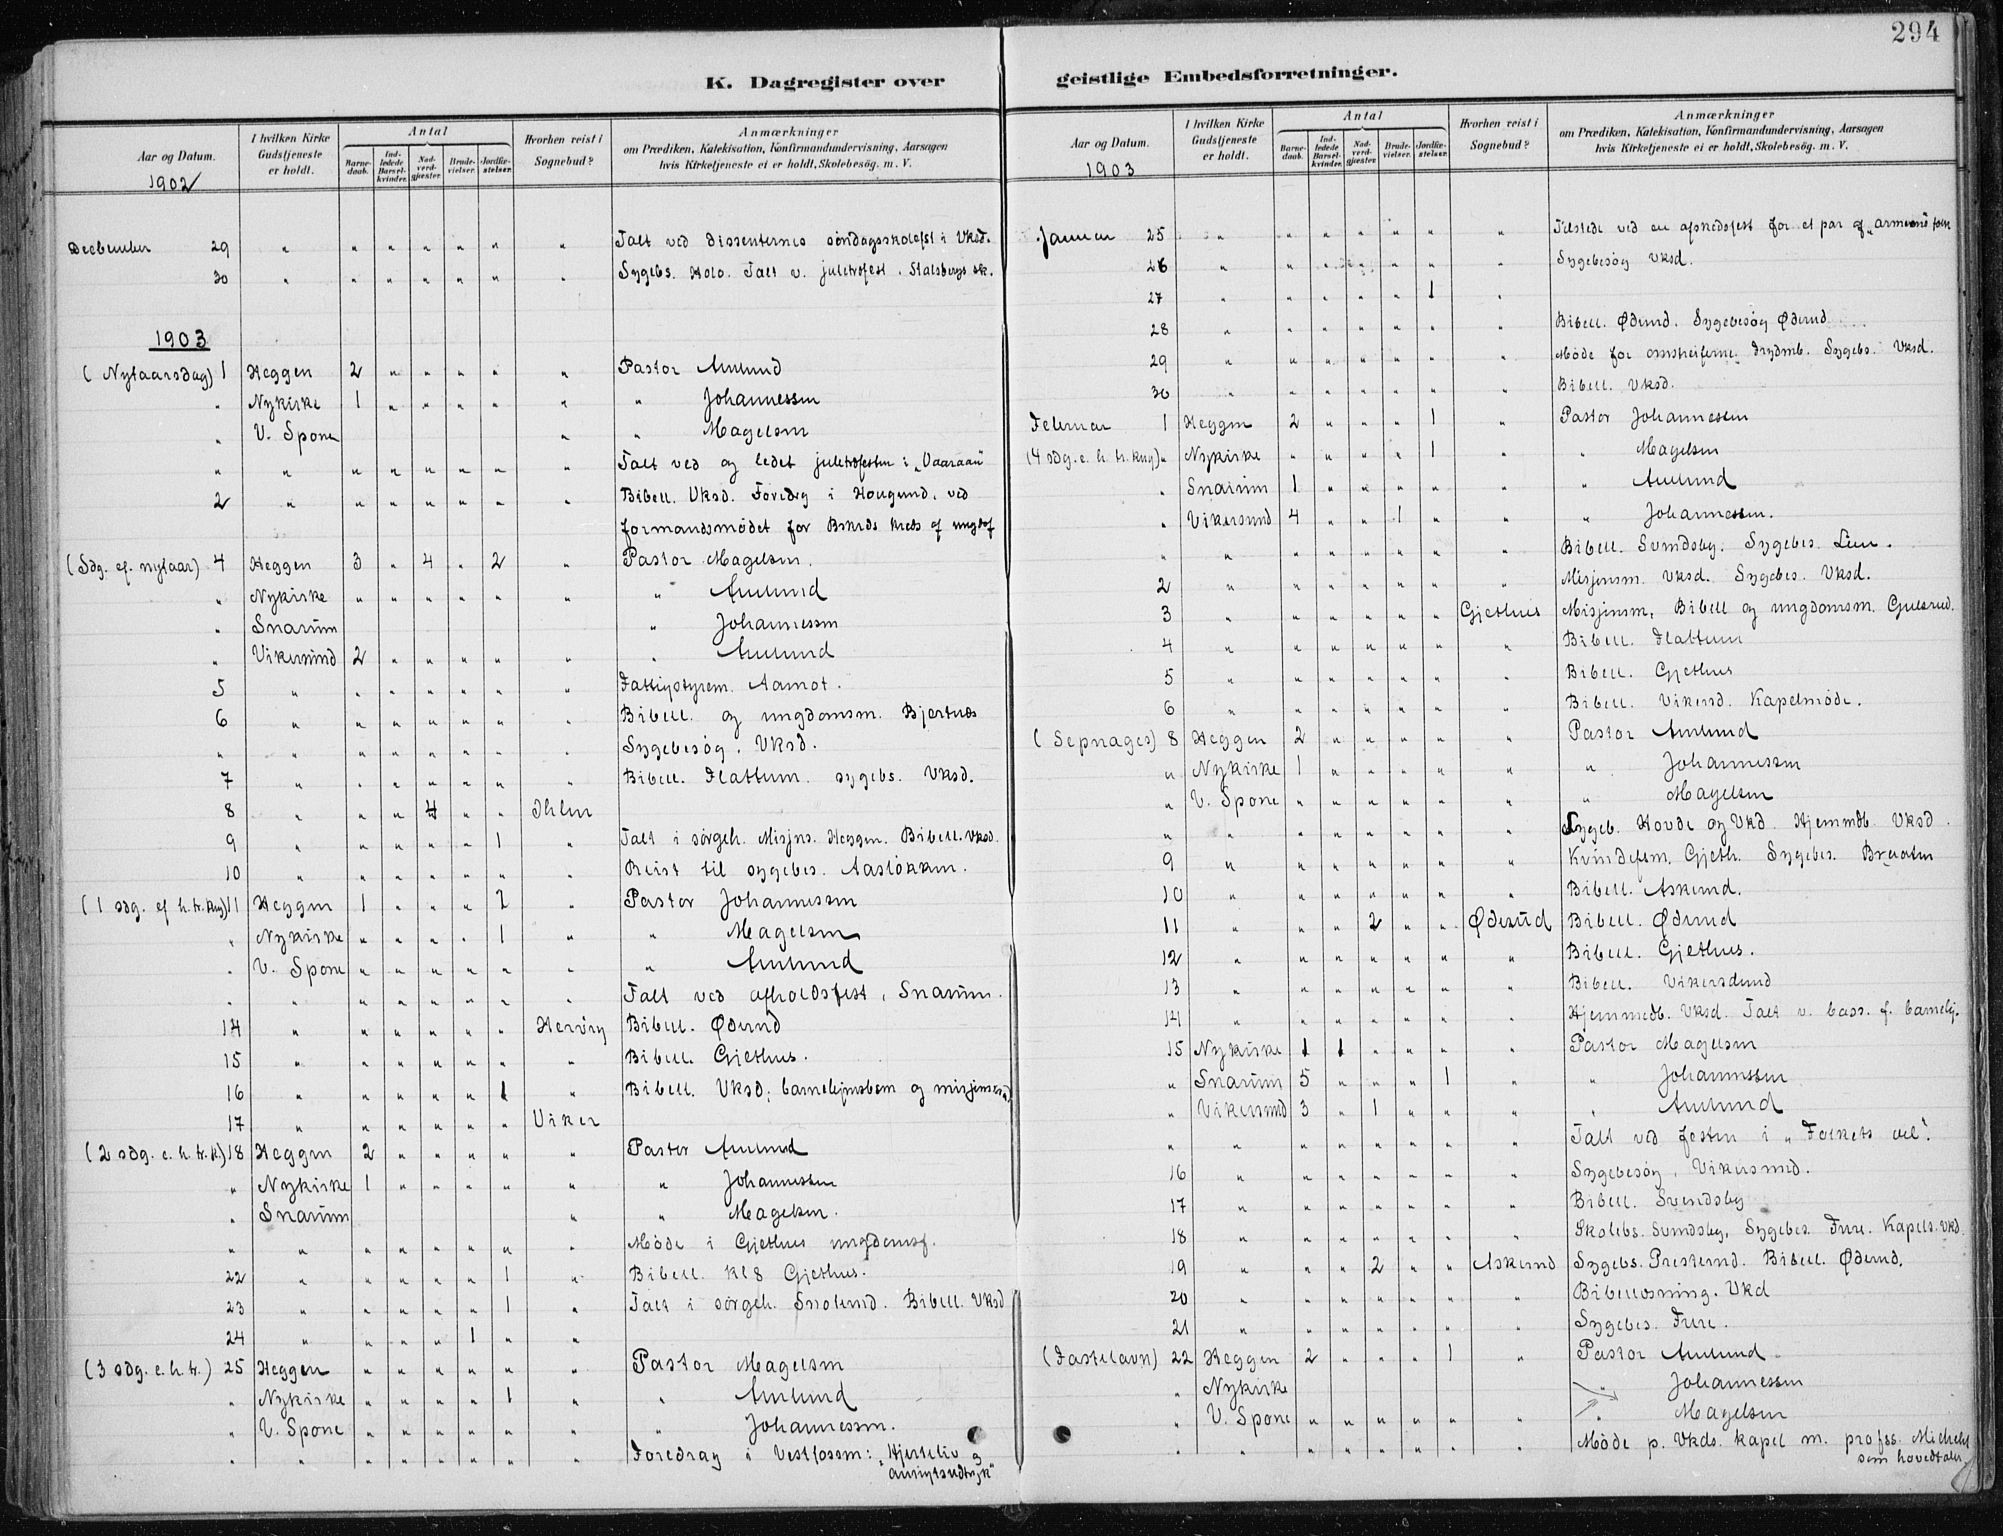 294
K. Dagregister over
geistlige Embedsforretninger.
Aar og Datum.
I hvilken Kirke Gudstjeneste er holdt.
Antal
Barne-daab.
Ind-ledede Barsel-kvinder.
Nad-verd-gjæster.
Brude-vielser.
Jordfæ-stelser.
Hvorhen reist i Sognebud?
Anmærkninger
om Prædiken, Katekisation, Konfirmandundervisning, Aarsagen
hvis Kirketjeneste ei er holdt, Skolebesög. m. V.
1902
December 29 " " " " " " " Talt ved dissenternes søndagsskolefst i Vksd.
30 " " " " " " " Sygebs. Holo. Talt v. juletrøfest i Stalsbergs sk.
1903
(Nytaarsdag) 1 Heggen 2 " " " " " Pastor Amlund
" Nykirke 1 " " " " " " Johannessen
" V. Spone " " Magelsen
" " " " " " " " Talt ved og ledet juletrøfesten i „Vaaraan"
2 " " " " " " " Bibell. Vksd. Foredrg i Hougsund, ved
formandsmødet for Bskrds kreds af ungdsf
(Sdg. ef. nytaar) 4 Heggen 3 " 4 " 2 " Pastor Magelsen.
" Nykirke " " " " " " " Amlund
" Snarum " Johannessen
" Vikersund 2 " " " " " " Amlund
5 " " " " " " " Fattigstyrem. Aamot.
6 " " " " " " " Bibell. og ungdomsm. Bjertnæs
" " " " " " " " Sygebesøg, Vksd.
7 " " " " " " " Bibell. Flattum. sygebs. Vksd.
8 " " " 4 " " Ihlen
9 " " " " " 1 " Talt i sørgeh. Misjns. Heggen. Bibell. Vksd.
10 " " " " " " " Reist til sygebes. Aasløkken.
(1 sdg. ef h. tr. kng) 11 Heggen 1 " " " 2 " Pastor Johannessen
" Nykirke " " " " 1 " " Magelsen
" V. Spone " " " " " " " Amlund
" " " " " " " " Talt ved afholdsfest i Snarum.
14 " " " " " " Hervig Bibell. Ødeund
15 " " " " " " " Bibell. Gjethus.
16 " " " " " 1 " Bibell. Vksd;
17 " " " " " " Viker
(2 sdg. e. h. tr. k.) 18 Heggen 2 " " " " " Pastor Amlund
" Nykirke 1 " " " " " " Johannessen
" Snarum " " Magelsen.
" " " " " " " " Møde i Gjethus ungdomsf.
22 " " " " " 1 " Bibell. kl 8 Gjethus.
23 " " " " " 1 " Talt i sørgeh. Bibell. Vksd
24 " " " " 1 " "
(3 sdg. e. h. tr.) 25 Heggen " " " " " " Pastor Magelsen
" Nykirke " " " " 1 " " Amlund
" V. Spone " " " " " " " Johannessen.
" " " " " " " " Foredrag i Vestfossen: „Hjerteliv og
ansigtsudtryk"
Aar og Datum.
I hvilken Kirke Gudstjeneste er holdt.
Antal
Barne-daab.
Ind-ledede Barsel-kvinder.
Nad-verd-gjæster.
Brude-vielser.
Jordfæ-stelser.
Hvorhen reist i Sognebud?
Anmærkninger
om Prædiken, Katekisation, Konfirmandundervisning, Aarsagen
hvis Kirketjeneste ei er holdt, Skolebesög. m. V.
1903
Januar 25 " " " " " " " Tilstede ved en afskedsfest for et par af
26 " " " " " " " Sygebesøg Vksd.
27 " " " " " 1 "
28 " " " " " " " Bibell. Ødeund. Sygebesøg Ødeund
29 " " " " " " " Møde for omstreiferne. Sygebs. Vksd.
30 " " " " " " " Bibell. Vksd.
Februar 1 Heggen 2 " " " 1 " Pastor Johannessen
(4 sdg. e. h. tr. kng) " Nykirke " " " " 1 " " Magelsen
" Snarum 1 " " " " " " Amlund
" Vikersund 4 " " 1 " " " Johannessen.
" " " " " " " " Bibell. Svendsby. Sygebes. Lien.
2 " " " " " " " Misjonsm. Vksd. Sygebes. Vksd.
3 " " " " " " Gjethus Misjonsm, Bibell og ungdomsm. Gulsrud.
4 " " " " " " " Bibell. Flattum
5 " " " " " " " Bibell. Gjethus
6 " " " " " " " Bibell. Vikersd. Kapelmøde.
(Sepnages) 8 Heggen 2 " " " " " Pastor Amlund
" Nykirke 1 " " " " " " Johannessen
" V. Spone " " " " " " " Magelsen
" " " " " " " " Sygeb. Hovde og Vkd. Hjemmdb. Vksd.
9 " " " " " " " Kvindefsm, Gjeth. Sygebes. Braaten
10 " " " " " " " Bibell. Askerud.
11 " " " 2 " " Øderud Bibell. Ødeund
12 " " " " " " " Bibell. Gjethus.
13 " " " " " " " Bibell. Vikersund
14 " " " " " " " Hjemmedb. Vksd. Talt v. bass. f. barnehj.
15 Nykirke 1 1 " " " " Pastor Magelsen
" Snarum 5 " " " 1 " " Johannessen
" Vikersund 3 " 1 " " " " Amlund
" " " " " " " " Talt ved festen i „Folkets vel".
16 " " " " " " " Sygebesøg, Vikersund.
17 " " " " " " " Bibell. Svendsby
18 " " " " " " " Skolebs. Svendsby, Sygebes. Fure. Kapels. Vkd.
19 " " " 2 " " Askerud Sygebs. Presterud. Bibell. Ødeund.
20 " " " " " " " Bibellæsning. Vkd
21 " " " " " " " Sygebes. Fure.
(Fastelavn) 22 Heggen 2 " " " 1 " Pastor Amlund
" Nykirke " Johannessen
" V. Spone " " " " " " " Magelsen
" " " " " " " " Møde p. Vkds. kapel m. profss. Michelet
som hovedtaler